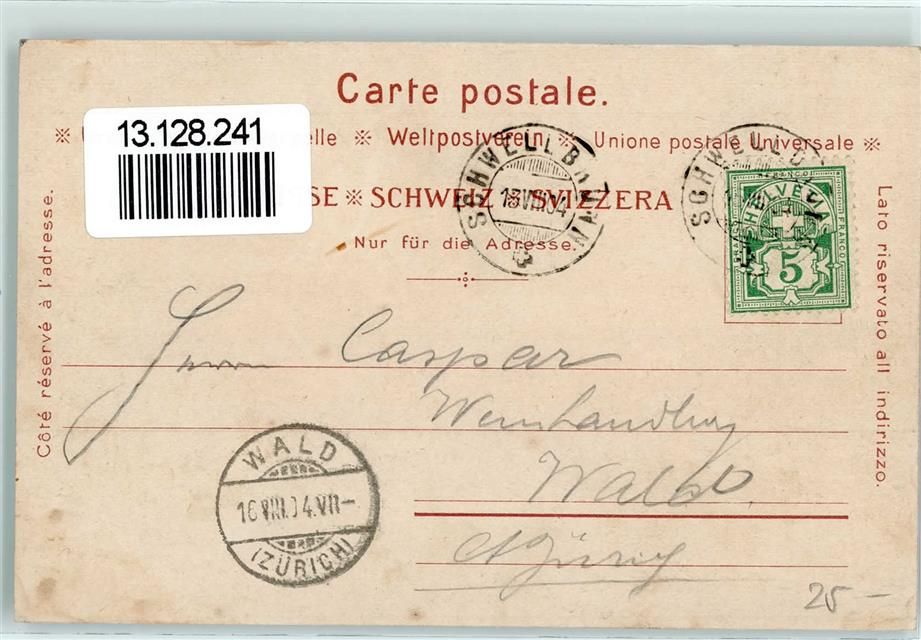 Carte postale.
13.128.241
elle ※ Weltpostverein ※ Unione postale Universale ※
SSE ※ SCHWEIZ ※ SVIZZERA
Nur für die Adresse.
Côté réservé à l'adresse.
Lato riservato all indirizzo.
SCHWELLBRUNN
13 VIII 04
SCHWELLBRUNN
FRANCO
HELVETIA
5
Herrn Caspar
Weinhandlung
Wald
Kt Zürich
WALD
16 VIII. 04. VII-
(ZÜRICH)
25 -